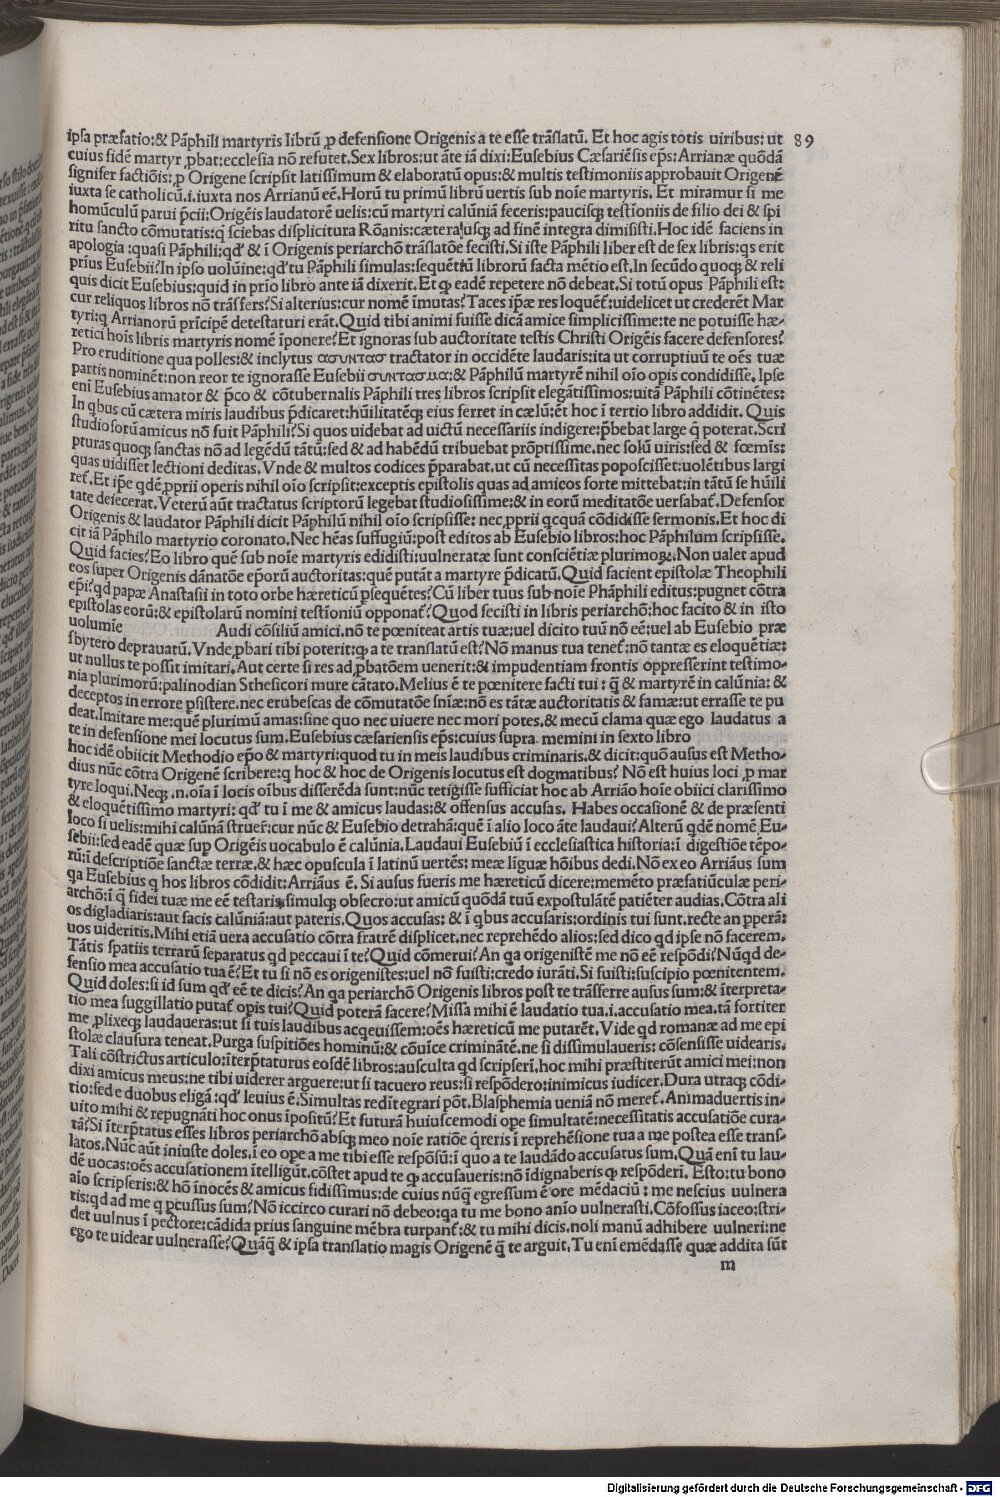 ipsa præfatio:& Pãphili martyris librũ ꝓ defensione Origenis a te esse trãslatũ. Et hoc agis totis uiribus: ut 89
cuius fidẽ martyr ꝓbat:ecclesia nõ refutet. Sex libros:ut ãte iã dixi:Eusebius Cæsariẽsis ep̃s:Arrianæ quõdã
signifer factiõis:ꝓ Origene scripsit latissimum & elaboratũ opus:& multis testimoniis approbauit Origenẽ
iuxta se catholicũ.i.iuxta nos Arrianũ eẽ. Horũ tu primũ librũ uertis sub noĩe martyris. Et miramur si me
homũculũ parui p̃cii:Origẽis laudatorẽ uelis:cũ martyri calũniã feceris:paucisqꝫ testĩoniis de filio dei & spi
ritu sancto cõmutatis:q̃ sciebas displicitura Rõanis:cætera usqꝫ ad finẽ integra dimisisti. Hoc idẽ faciens in
apologia :quasi Pãphili:qđ & ĩ Origenis periarchõ trãslatõe fecisti. Si iste Pãphili liber est de sex libris:qs erit
prĩus Eusebii?In ipso uolũine:qđ tu Pãphili simulas:sequẽtiũ librorũ facta mẽtio est. In secũdo quoqꝫ & reli
quis dicit Eusebius:quid in prĩo libro ante iã dixerit. Et qꝫ eadẽ repetere nõ debeat. Si totũ opus Pãphili est:
cur reliquos libros nõ trãsfers?Si alterius:cur nomẽ ĩmutas?Taces ip̃æ res loquẽt̃:uidelicet ut crederẽt Mar
tyri:q̃ Arrianorũ prĩcipẽ detestaturi erãt. Quid tibi animi fuisse dicã amice simplicissime:te ne potuisse hæ-
retici hoĩs libris martyris nomẽ ĩponere?Et ignoras sub auctoritate testis Christi Origẽis facere defensores?
Pro eruditione qua polles:& inclytus ασυντασ tractator in occidẽte laudaris:ita ut corruptiuũ te oẽs tuæ
partis nominẽt:non reor te ignorasse Eusebii συντασμα:& Pãphilũ martyrẽ nihil oĩo opis condidisse. Ipse
enĩ Eusebius amator & p̃co & cõtubernalis Pãphili tres libros scripsit elegãtissimos:uitã Pãphili cõtinẽtes:
In qbus cũ cætera miris laudibus p̃dicaret:hũilitatẽqꝫ eius ferret in cælũ:ẽt hoc ĩ tertio libro addidit. Quis
studiosorũ amicus nõ fuit Pãphili?Si quos uidebat ad uictũ necessariis indigere:p̃bebat large q̃ poterat. Scri
pturas quoqꝫ sanctas nõ ad legẽdũ tãtũ:sed & ad habẽdũ tribuebat prõptissime.nec solũ uiris:sed & fœmĩs:
quas uidisset lectioni deditas. Vnde & multos codices p̃parabat.ut cũ necessitas poposcisset:uolẽtibus largi
ret̃. Et ip̃e qdẽ ꝓprii operis nihil oĩo scripsit:exceptis epistolis quas ad amicos forte mittebat:in tãtũ se hũili
tate deiecerat. Veterũ aũt tractatus scriptorũ legebat studiosissime:& in eorũ meditatõe uersabat̃. Defensor
Origenis & laudator Pãphili dicit Pãphilũ nihil oĩo scripsisse: nec ꝓprii qcquã cõdidisse sermonis. Et hoc di
cit iã Pãphilo martyrio coronato. Nec hẽas suffugiũ:post editos ab Eusebio libros:hoc Pãphilum scripsisse.
Quid facies?Eo libro quẽ sub noĩe martyris edidisti:uulneratæ sunt consciẽtiæ plurimoꝝ. Non ualet apud
eos super Origenis dãnatõe ep̃orũ auctoritas:quẽ putãt a martyre p̃dicatũ. Quid facient epistolæ Theophili
ep̃i?qd papæ Anastasii in toto orbe hæreticũ ꝑsequẽtes?Cũ liber tuus sub noĩe Phãphili editus:pugnet cõtra
epistolas eorũ:& epistolarũ nomini testĩoniũ opponat̃?Quod fecisti in libris periarchõ:hoc facito & in isto
uolumĩe Audi cõsiliũ amici.nõ te pœniteat artis tuæ:uel dicito tuũ nõ eẽ:uel ab Eusebio præ
sbytero deprauatũ. Vnde ꝓbari tibi poterit:qꝫ a te translatũ est?Nõ manus tua tenet̃:nõ tantæ es eloquẽtiæ:
ut nullus te possit imitari. Aut certe si res ad ꝓbatõem uenerit:& impudentiam frontis oppresserint testimo-
nia plurimorũ:palinodian Sthesicori mure cãtato. Melius ẽ te pœnitere facti tui : q̃ & martyrẽ in calũnia: &
deceptos in errore ꝑsistere.nec erubescas de cõmutatõe sniæ:nõ es tãtæ auctoritatis & famæ:ut errasse te pu
deat. Imitare me:quẽ plurimũ amas:sine quo nec uiuere nec mori potes.& mecũ clama quæ ego laudatus a
te in defensione mei locutus sum. Eusebius cæsariensis ep̃s:cuius supra memini in sexto libro
hoc idẽ obiicit Methodio ep̃o & martyri:quod tu in meis laudibus criminaris.& dicit:quõ ausus est Metho-
dius nũc cõtra Origenẽ scribere:q hoc & hoc de Origenis locutus est dogmatibus? Nõ est huius loci ꝓ mar
tyre loqui. Neqꝫ .n.oĩa ĩ locis oĩbus disserẽda sunt:nũc tetigisse sufficiat hoc ab Arrião hoĩe obiici clarissimo
& eloquẽtissimo martyri: qđ tu ĩ me & amicus laudas:& offensus accusas. Habes occasionẽ & de præsenti
loco si uelis:mihi calũnã struer̃:cur nũc & Eusebio detrahã:quẽ ĩ alio loco ãte laudaui?Alterũ qdẽ nomẽ Eu-
sebii:sed eadẽ quæ suꝑ Origẽis uocabulo ẽ calũnia. Laudaui Eusebiũ ĩ ecclesiastica historia:ĩ digestiõe tẽpo-
rũ:ĩ descriptiõe sanctæ terræ.& hæc opuscula ĩ latinũ uertẽs: meæ lĩguæ hõibus dedi. Nõ ex eo Arriãus sum
qa Eusebius q hos libros cõdidit:Arriãus ẽ. Si ausus fueris me hæreticũ dicere:memẽto præfatiũculæ peri-
archõ:ĩ q̃ fidei tuæ me eẽ testaris,simulqꝫ obsecro:ut amicũ quõdã tuũ expostulãtẽ patiẽter audias. Cõtra ali
os digladiaris:aut facis calũniã:aut pateris. Quos accusas: & ĩ qbus accusaris:ordinis tui sunt.recte an pperã:
uos uideritis. Mihi etiã uera accusatio cõtra fratrẽ displicet.nec reprehẽdo alios:sed dico qđ ipse nõ facerem.
Tãtis spatiis terrarũ separatus qđ peccaui ĩ te?Quid cõmerui?An qa origenistẽ me nõ eẽ respõdi?Nũqđ de-
fensio mea accusatio tua ẽ?Et tu si nõ es origenistes:uel nõ fuisti:credo iurãti. Si fuisti:suscipio pœnitentem.
Quid doles:si id sum qđ eẽ te dicis?An qa periarchõ Origenis libros post te trãsferre ausus sum:& ĩterpreta-
tio mea suggillatio putat̃ opis tui?Quid poterã facere?Missa mihi ẽ laudatio tua.i.accusatio mea.tã fortiter
me ꝓlixeqꝫ laudaueras:ut si tuis laudibus acqeuissem:oẽs hæreticũ me putarẽt. Vide qđ romanæ ad me epi
stolæ clausura teneat. Purga suspitiões hominũ:& cõuĩce criminãtẽ.ne si dissimulaueris: cõsensisse uidearis.
Tali cõstrictus articulo:ĩterp̃taturus eosdẽ libros:ausculta qđ scripserĩ.hoc mihi præstiterũt amici mei:non
dixi amicus meus:ne tibi uiderer arguere:ut si tacuero reus:si respõdero:inimicus iudicer. Dura utraqꝫ cõdi-
tio:sed e duobus eligã:qđ leuius ẽ. Simultas redĩtegrari põt. Blasphemia ueniã nõ meret̃. Animaduertis in-
uito mihi & repugnãti hoc onus ĩpositũ?Et futurã huiuscemodi ope simultatẽ:necessitatis accusatiõe cura-
tã?Si ĩterp̃tatus esses libros periarchõ absqꝫ meo noĩe ratiõe q̃reris ĩ reprehẽsione tua a me postea esse trans-
latos. Nũc aũt iniuste doles.ĩ eo ope a me tibi esse respõsũ:ĩ quo a te laudãdo accusatus sum. Quã enĩ tu lau-
dẽ uocas:oẽs accusationem ĩtelligũt.cõstet apud te qꝫ accusaueris:nõ ĩdignaberis qꝫ respõderĩ. Esto:tu bono
aĩo scripseris:& hõ ĩnocẽs & amicus fidissimus:de cuius nũq̃ egressum ẽ ore mẽdaciũ : me nescius uulnera
ris:qđ ad me q pcussus sum?Nõ iccirco curari nõ debeo:qa tu me bono anĩo uulnerasti. Cõfossus iaceo:stri-
det uulnus ĩ pectore:cãdida prius sanguine mẽbra turpant̃:& tu mihi dicis.noli manũ adhibere uulneri:ne
ego te uidear uulnerasse?Quãq̃ & ipsa translatio magis Origenẽ q̃ te arguit. Tu enĩ emẽdasse quæ addita sũt
m
Digitalisierung gefördert durch die Deutsche Forschungsgemeinschaft - DFG